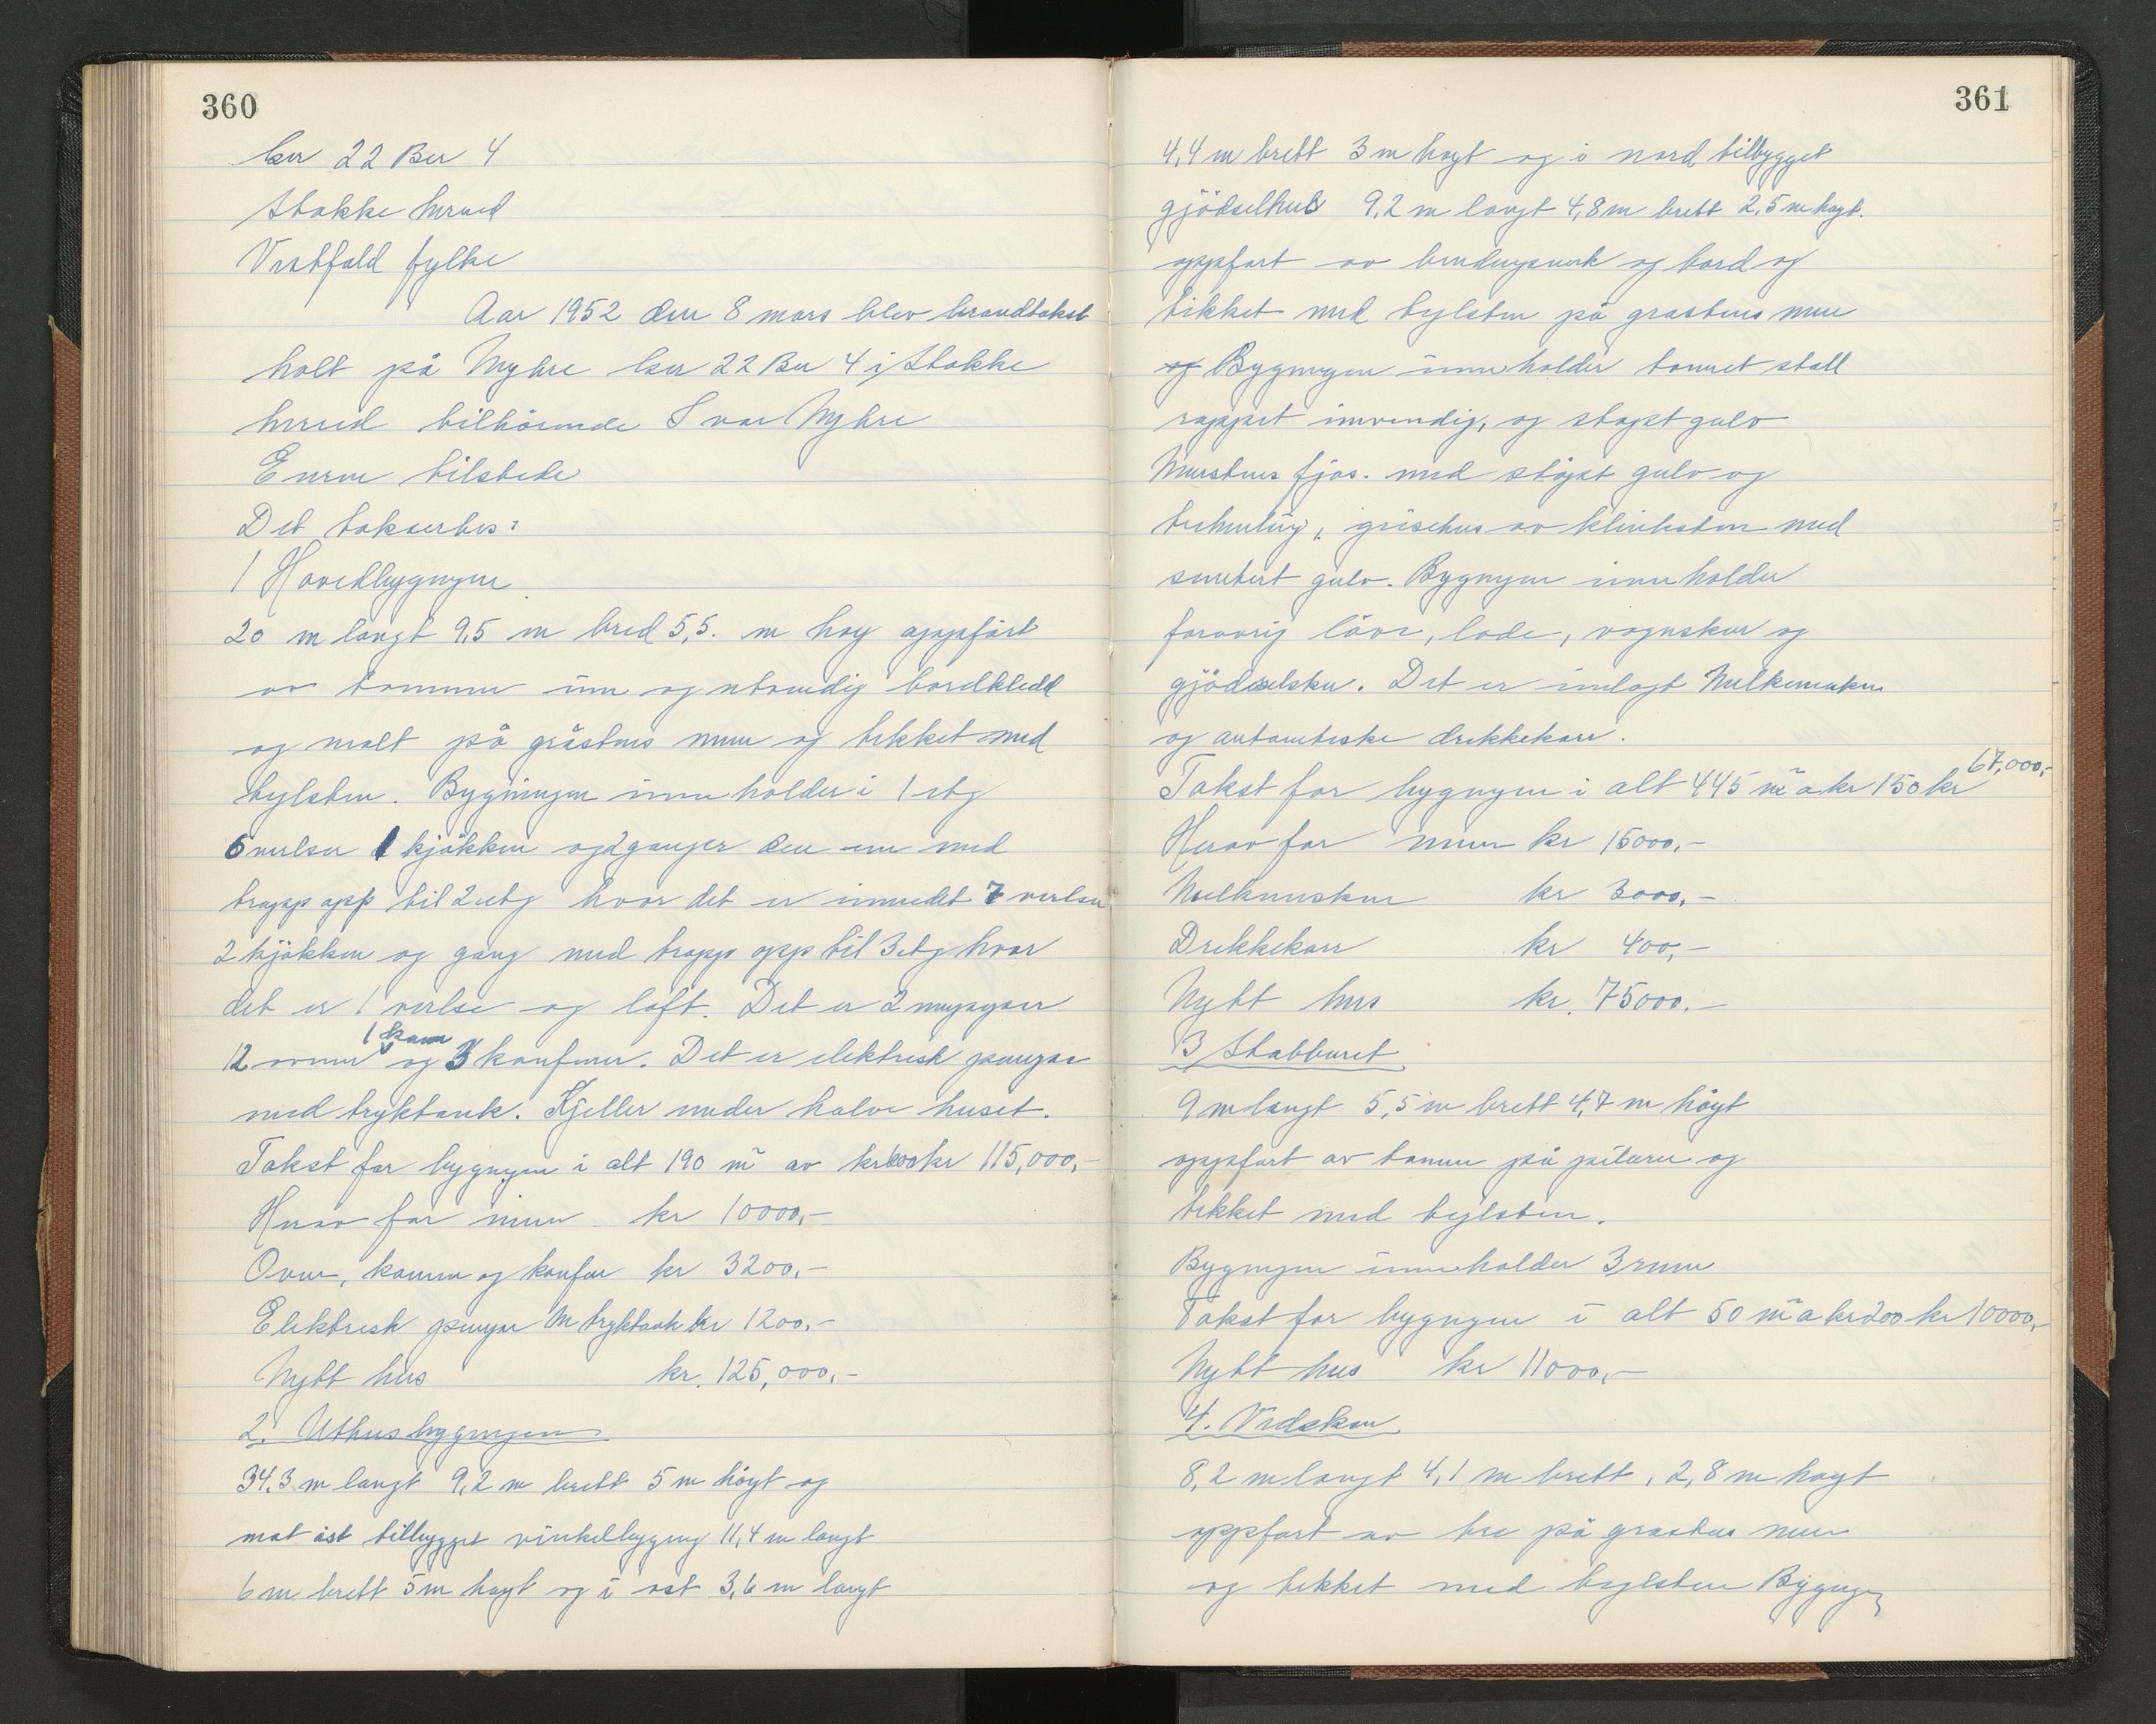 360
Gnr 22 Bnr 4
Stokke herred
Vestfold fylke
Aar 1952 den 8 mars blev branntakst
holt på Myhre Gnr 22 Bnr 4 i Stokke
herred tilhörende Ivar Myhre
Eieren tilstede
Det taksertes:
1 Hovedbygnngen
20 m langt 9,5 m bred 5,5. m hög oppfört
av tømmer inn og utvendig bordkledd
og malt på gråstens mur og tekket med
teglsten. Bygningen inneholder i 1 etg
6 verelser 1 kjökken og 2 ganger den ene med
trapp opp til 2 etg hvor det er innredet 7 verelser
2 kjökken og gang med trapp opp til 3 etg hvor
det er 1 verelse og loft. Det er 2 murpiper
12 ovner 1 kamin og 3 komfurer. Det er elektrisk pumpe
med tryktank. Kjeller under halve huset.
Takst for bygnngen i alt 190 m² av kr 600 kr 115,000,-
Herav for mur kr 10000,-
Ovner, kamin og komfur kr 3200,-
Elektrisk pumpe m tryktank kr 1200,-
Nytt hus kr. 125,000,-
2. Uthusbygnngen
34,3 m langt 9,2 m brett 5 m höyt og
mot öst tilbygget vinkelbygning 11,4 m langt
6 m brett 5 m höyt og i öst 3,6 m langt
361
4,4 m brett 3 m høyt og i nord tilbygget
gjödselhus 9,2 m langt 4,8 m brett 2,5 m høyt.
oppført av bindingsverk og bord og
tekket med teglsten på grastens mur
og Bygnngen inneholder tømret stall
rappet innvendig, og støpt gulv
Murstens fjøs. med stöpt gulv og
grisehus av klinksten med
sementert gulv. Bygnngen inneholder
forøvrig låve, lade, vognskur og
gjödselskur. Det er innlagt Melkemaskin
og automatiske drikkekar.
Takst for bygnngen i alt 445 m² a kr 150 kr 67,000,-
Herav for mur kr 15000,-
Melkemaskin kr 3000,-
Drikkekarr kr 400,-
Nytt hus kr. 75000.-
3 Stabburet
9 m langt 5,5 m brett 4,7 m höyt
oppført av tømmer på pilarer og
tekket med teglsten.
Bygnngen inneholder 3 rum
Takst for bygnngen i alt 50 m² a kr 200 kr 10000,-
Nytt hus kr 11000,-
4. Vedskur
8,2 m langt 4,1 m brett, 2,8 m høyt
oppført av tre på grastens mur
og tekket med teglsten Bygngen